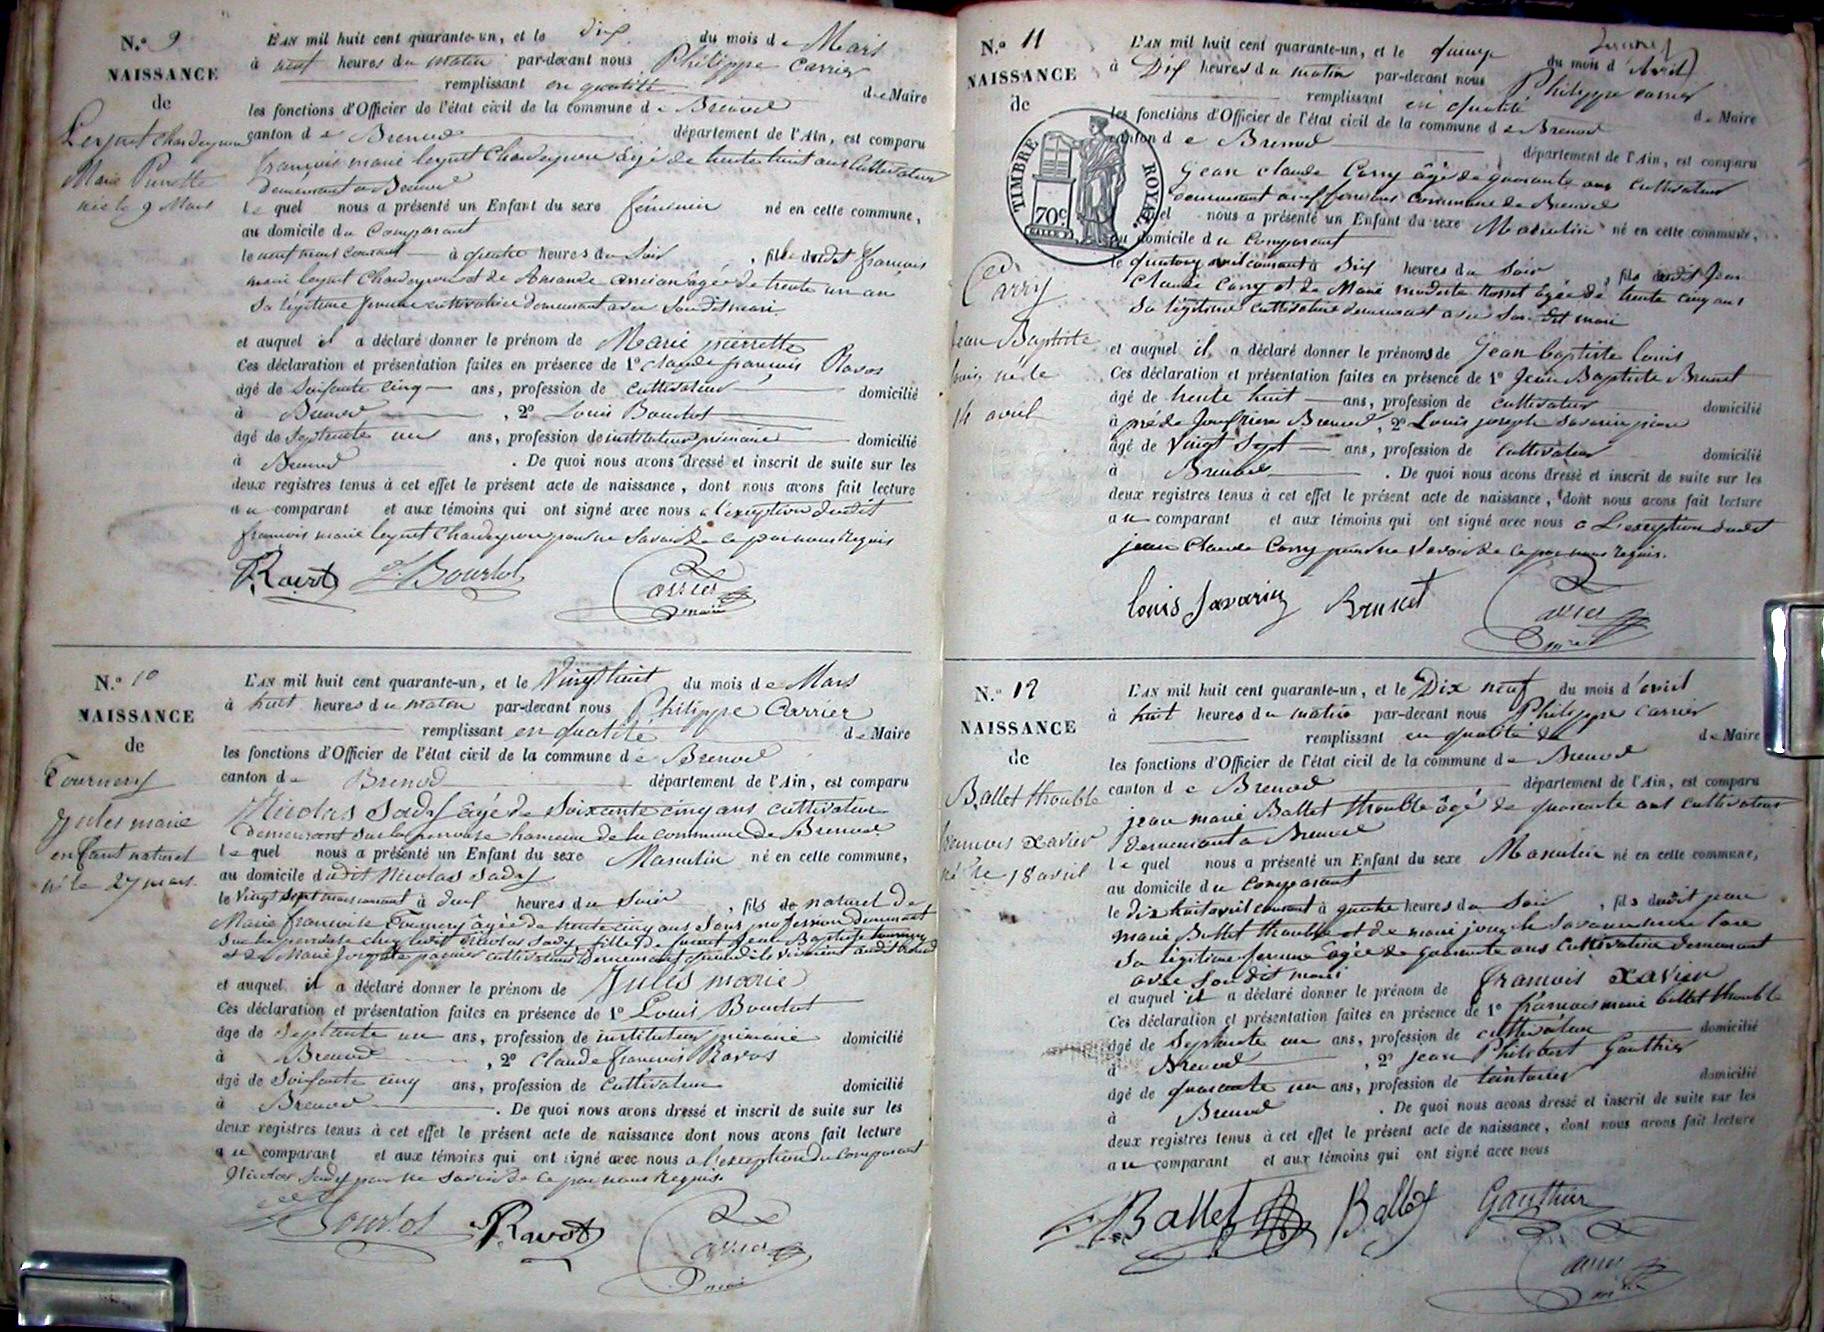 N.° 9
NAISSANCE
de
Leynet Chardeyron
Marie Pierrette
née le 9 Mars
L'AN mil huit cent quarante-un, et le dix du mois de Mars
à neuf heures du matin par-devant nous Philippe Carrier
remplissant en qualité de Maire
les fonctions d'Officier de l'état civil de la commune de Brenod
canton de Brenod département de l'Ain, est comparu
françois marie leynet Chardeyron âgé de trente huit ans Cultivateur
demeurant a Brenod
lequel nous a présenté un Enfant du sexe féminin né en cette commune,
au domicile du Comparant
le neuf mars courant à quatre heures du Soir, fille dudit françois
marie leynet Chardeyron et de âgée de trente un an
Sa légitime femme cultivatrice demeurant avec Son dit mari
et auquel il a déclaré donner le prénom de Marie pierrette
Ces déclaration et présentation faites en présence de 1° Claude françois Ravot
âgé de Soixante cinq ans, profession de cultivateur domicilié
à Brenod, 2° Louis Bourlot
âgé de Septante un ans, profession de instituteur primaire domicilié
à Brenod. De quoi nous avons dressé et inscrit de suite sur les
deux registres tenus à cet effet le présent acte de naissance, dont nous avons fait lecture
au comparant et aux témoins qui ont signé avec nous a l'exception dudit
françois marie leynet Chardeyron pour ne Savoir de ce par nous Requis
Ravot L. Bourlot Carrier maire
N.° 10
NAISSANCE
de
Tournery
Jules marie
enfant naturel
né le 27 mars
L'AN mil huit cent quarante-un, et le Vingt huit du mois de Mars
à huit heures du matin par-devant nous Philippe Carrier
remplissant en qualité de Maire
les fonctions d'Officier de l'état civil de la commune de Brenod
canton de Brenod département de l'Ain, est comparu
Nicolas Sady âgé de Soixante cinq ans cultivateur
demeurant Sur la perouse hameau de la commune de Brenod
lequel nous a présenté un Enfant du sexe Masculin né en cette commune,
au domicile dudit Nicolas Sady
le Vingt Sept mars courant à deux heures du Soir, fils de naturel de
Marie françoise Tournery âgée de trente cinq ans Sans profession demeurant
Sur la perouse chez ledit Nicolas Sady, fille de feu Jean Baptiste tournery
et de Marie cultivateurs demeurant quand ils vivaient audit Brenod
et auquel il a déclaré donner le prénom de Jules marie
Ces déclaration et présentation faites en présence de 1° Louis Bourlot
âge de Septante un ans, profession de instituteur primaire domicilié
à Brenod, 2° Claude françois Ravot
âgé de Soixante cinq ans, profession de Cultivateur domicilié
à Brenod. De quoi nous avons dressé et inscrit de suite sur les
deux registres tenus à cet effet le présent acte de naissance dont nous avons fait lecture
au comparant et aux témoins qui ont signé avec nous a l'exception du Comparant
Nicolas Sady pour ne Savoir de ce par nous Requis
L. Bourlot Ravot Carrier maire
N.° 11
NAISSANCE
de
TIMBRE ROYAL
70c
Carry
Jean Baptiste
louis né le
14 avril
L'AN mil huit cent quarante-un, et le quinze du mois d'Avril
à Dix heures du matin par-devant nous Philippe carrier
remplissant en qualité de Maire
les fonctions d'Officier de l'état civil de la commune de Brenod
canton de Brenod département de l'Ain, est comparu
Jean claude Carry âgé de quarante ans Cultivateur
demeurant commune de Brenod
lequel nous a présenté un Enfant du sexe Masculin né en cette commune,
au domicile du Comparant
le quatorze avril courant à Dix heures du Soir, fils dudit Jean
Claude Carry et de Marie modeste Rosset âgée de trente cinq ans
Sa légitime cultivatrice demeurant avec Son dit mari
et auquel il a déclaré donner le prénoms de Jean baptiste louis
Ces déclaration et présentation faites en présence de 1° Jean Baptiste Brunet
âgé de trente huit ans, profession de cultivateur domicilié
à Brenod, 2° Louis joseph Savarin
âgé de Vingt Sept ans, profession de Cultivateur domicilié
à Brenod. De quoi nous avons dressé et inscrit de suite sur les
deux registres tenus à cet effet le présent acte de naissance, dont nous avons fait lecture
au comparant et aux témoins qui ont signé avec nous a L'exception dudit
jean Claude Carry pour ne Savoir de ce par nous Requis.
louis Savarin Brunet Carrier maire
N.° 12
NAISSANCE
de
Ballet thouble
francois xavier
né le 18 avril
L'AN mil huit cent quarante-un, et le Dix neuf du mois d'avril
à huit heures du matin par-devant nous Philippe Carrier
remplissant en qualité de Maire
les fonctions d'Officier de l'état civil de la commune de Brenod
canton de Brenod département de l'Ain, est comparu
jean marie Ballet thouble âgé de quarante ans cultivateur
demeurant a Brenod
lequel nous a présenté un Enfant du sexe Masculin né en cette commune,
au domicile du Comparant
le dix huit avril courant à quatre heures du Soir, fils dudit jean
marie Ballet thouble et de marie
Sa légitime femme âgée de quarante ans Cultivatrice demeurant
avec Son dit mari
et auquel il a déclaré donner le prénom de francois xavier
Ces déclaration et présentation faites en présence de 1° francois marie ballet thouble
âgé de Septante un ans, profession de cultivateur domicilié
à Brenod, 2° jean Philibert Gauthier
âgé de quarante un ans, profession de teinturier domicilié
à Brenod. De quoi nous avons dressé et inscrit de suite sur les
deux registres tenus à cet effet le présent acte de naissance, dont nous avons fait lecture
au comparant et aux témoins qui ont signé avec nous
Ballet Ballet Gauthier
Carrier maire